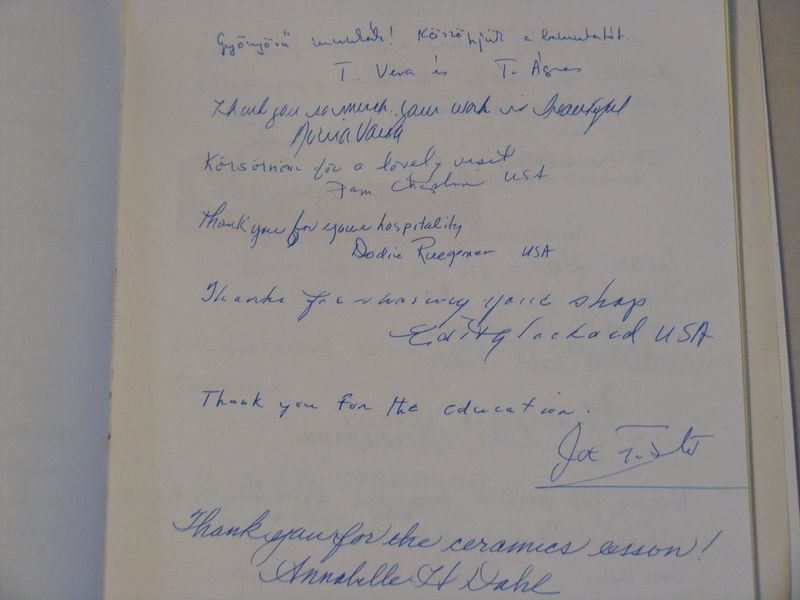 Gyönyörű munkák! Köszönjük a bemutatót.
T. Vera és T. Ágnes
Thank you so much. your work is beautiful
Maria
Köszönöm for a lovely visit
Pam USA
Thank you for your hospitality
Dodie Ruegemer USA
Thanks for sharing your shop
Edity Packard USA
Thank you for the education.
Joe
Thank you for the ceramics lesson!
Annabelle H Dahl